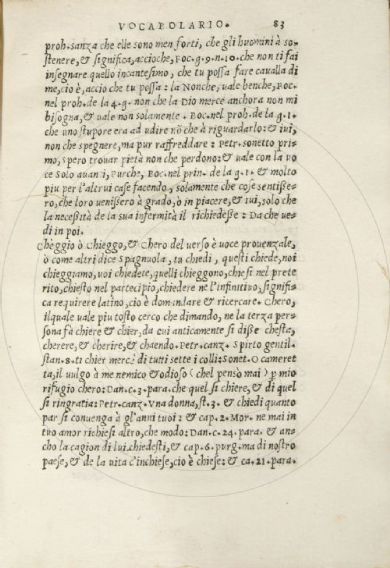 VOCABOLARIO. 83
proh. sanza che elle sono men forti, che gli huomini à so-
stenere, & significa, accioche, Boc. g. 9. n. 10. che non ti fai
insegnare quello incantesimo, che tu possa fare caualla di
me, cio è, accio che tu possa: la Nonche, uale benche, Boc.
nel proh. de la 4. g. non che la Dio mercé anchora non mi
bisogna, & uale non solamente. Boc. nel proh. de la g. 1.
che uno stupore era ad udire nō che à riguardarlo: & iui,
non che spegnere, ma pur raffreddare: Petr. sonetto pri-
mo, spero trouar pietà non che perdono: & uale con la uo
ce Solo auanti, Purche, Boc. nel prin. de la g. 1. & molto
piu per l'altrui case facendo, solamente che cose sentisse-
ro, che loro uenissero à grado, ò in piacere, & iui, solo che
la neceßità de la sua infermità il richiedesse: Da che ue-
di in poi.
Cheggio ò Chieggo, & Chero del uerso è uoce prouenzale,
ò come altri dice spagnuola, tu chiedi, questi chiede, noi
chieggiamo, uoi chiedete, quelli chieggono, chiesi nel prete
rito, chiesto nel partecipio, chiedere ne l'infinitiuo, signifi-
ca requirere latino, cio è domandare & ricercare. Chero,
ilquale uale piu tosto cerco che dimando, ne la terza per-
sona fà chiere & chier, da cui anticamente si diße chesta,
cherere, & cherire, & chaendo. Petr. canz. spirto gentil.
stan. 8. ti chier mercé di tutti sette i colli: sonet. O cameret
ta, il uulgo à me nemico & odioso (chel pensò mai) p mio
rifugio chero: Dan. c. 3. para. che quel si chiere, & di quel
si ringratia: Petr. canz. Vna donna, st. 3. & chiedi quanto
par si conuenga à gl'anni tuoi: & cap. 2. Mor. ne mai in
tuo amor richiesi altro, che modo: Dan. c. 24. para. & an-
cho la cagion di lui chiedesti, & cap. 6. purg. ma di nostro
paese, & de la uita c'inchiese, cio è chiese: & ca. 21. para.